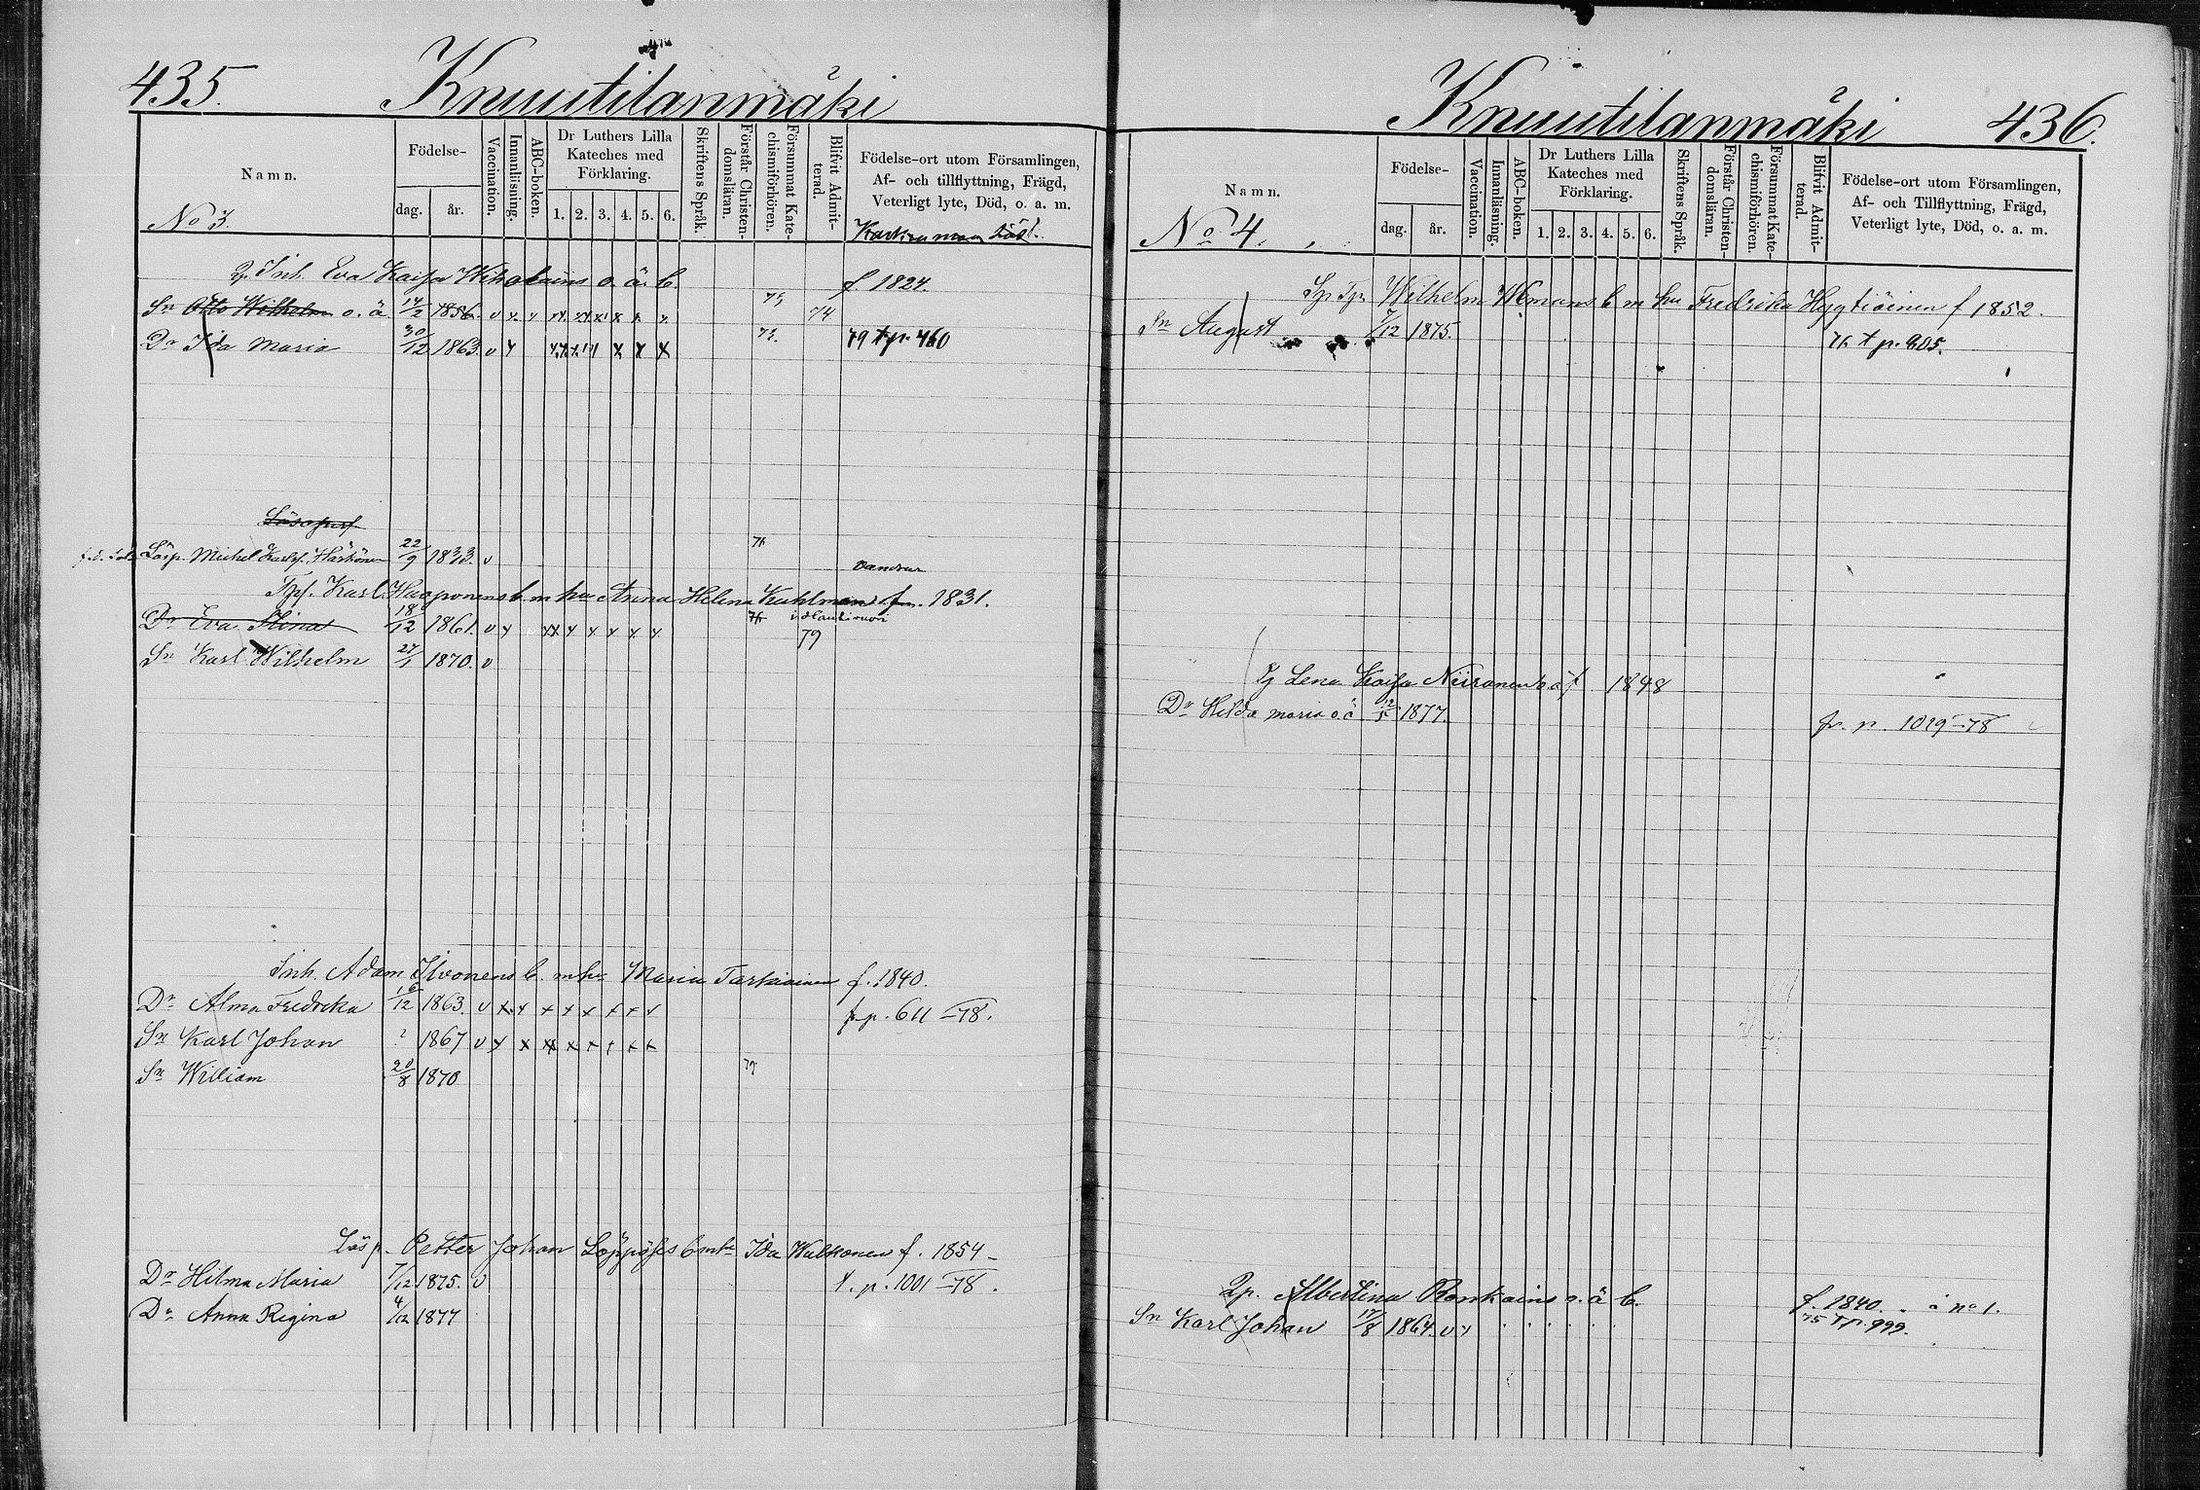 435.
Knuutilanmäki
Namn.
Födelse-
dag.
år.
Vaccination.
Innanläsning.
ABC-boken.
Dr Luthers Lilla
Kateches med
Förklaring.
1. 2. 3. 4. 5. 6.
Skriftens Språk.
Förstår Christen-
domsläran.
Försummat Kate-
chismiförhören.
Blifvit Admit-
terad.
Födelse-ort utom Församlingen,
Af- och tillflyttning, Frägd,
Veterligt lyte, Död, o. a. m.
No 3.
Inh. Eva Kaisa o. ä. b. f 1824.
Sn Otto Wilhelm o. ä 14/2 1856. v 74
Dr Ida Maria 30/12 1863. v 79 t p. 460
Lösp. Michel Härkönen 22/9 1833. v 76
Karl b m hu Anna Helena 1831.
Dr Eva Stina 18/12 1861. v 79
Sn Karl Wilhelm 27/1 1870. v
Inh. Adam Ilvonens b. m hu Maria Tarkiainen f. 1840.
Dr Alma Fredrika 12 1863. v p. 611 -78.
Sn Karl Johan ? 1867 v
Sn William 20/8 1870 79
Lösp. Petter Johan b m hu Ida f. 1854
Dr Hilma Maria 7/12 1875. v p. 1001 -78.
Dr Anna Regina 4/12 1877
Knuutilanmäki
436.
Namn.
Födelse-
dag.
år.
Vaccination.
Innanläsning.
ABC-boken.
Dr Luthers Lilla
Kateches med
Förklaring.
1. 2. 3. 4. 5. 6.
Skriftens Språk.
Förstår Christen-
domsläran.
Försummat Kate-
chismiförhören.
Blifvit Admit-
terad.
Födelse-ort utom Församlingen,
Af- och Tillflyttning, Frägd,
Veterligt lyte, Död, o. a. m.
No 4.
Wilhelm b m hu Fredrika Hyytiäinen f 1852.
Sn August 7/12 1875. 76 t p. 805.
Lena Kaisa Niiranen o. ä f 1848
Dr Hilda Maria o. ä 1877. fr. p. 1029 -78
Albertina Ronkains o. ä b. f. 1840. å no 1.
Sn Karl Johan 17/8 1864. v 75 t p. 999.